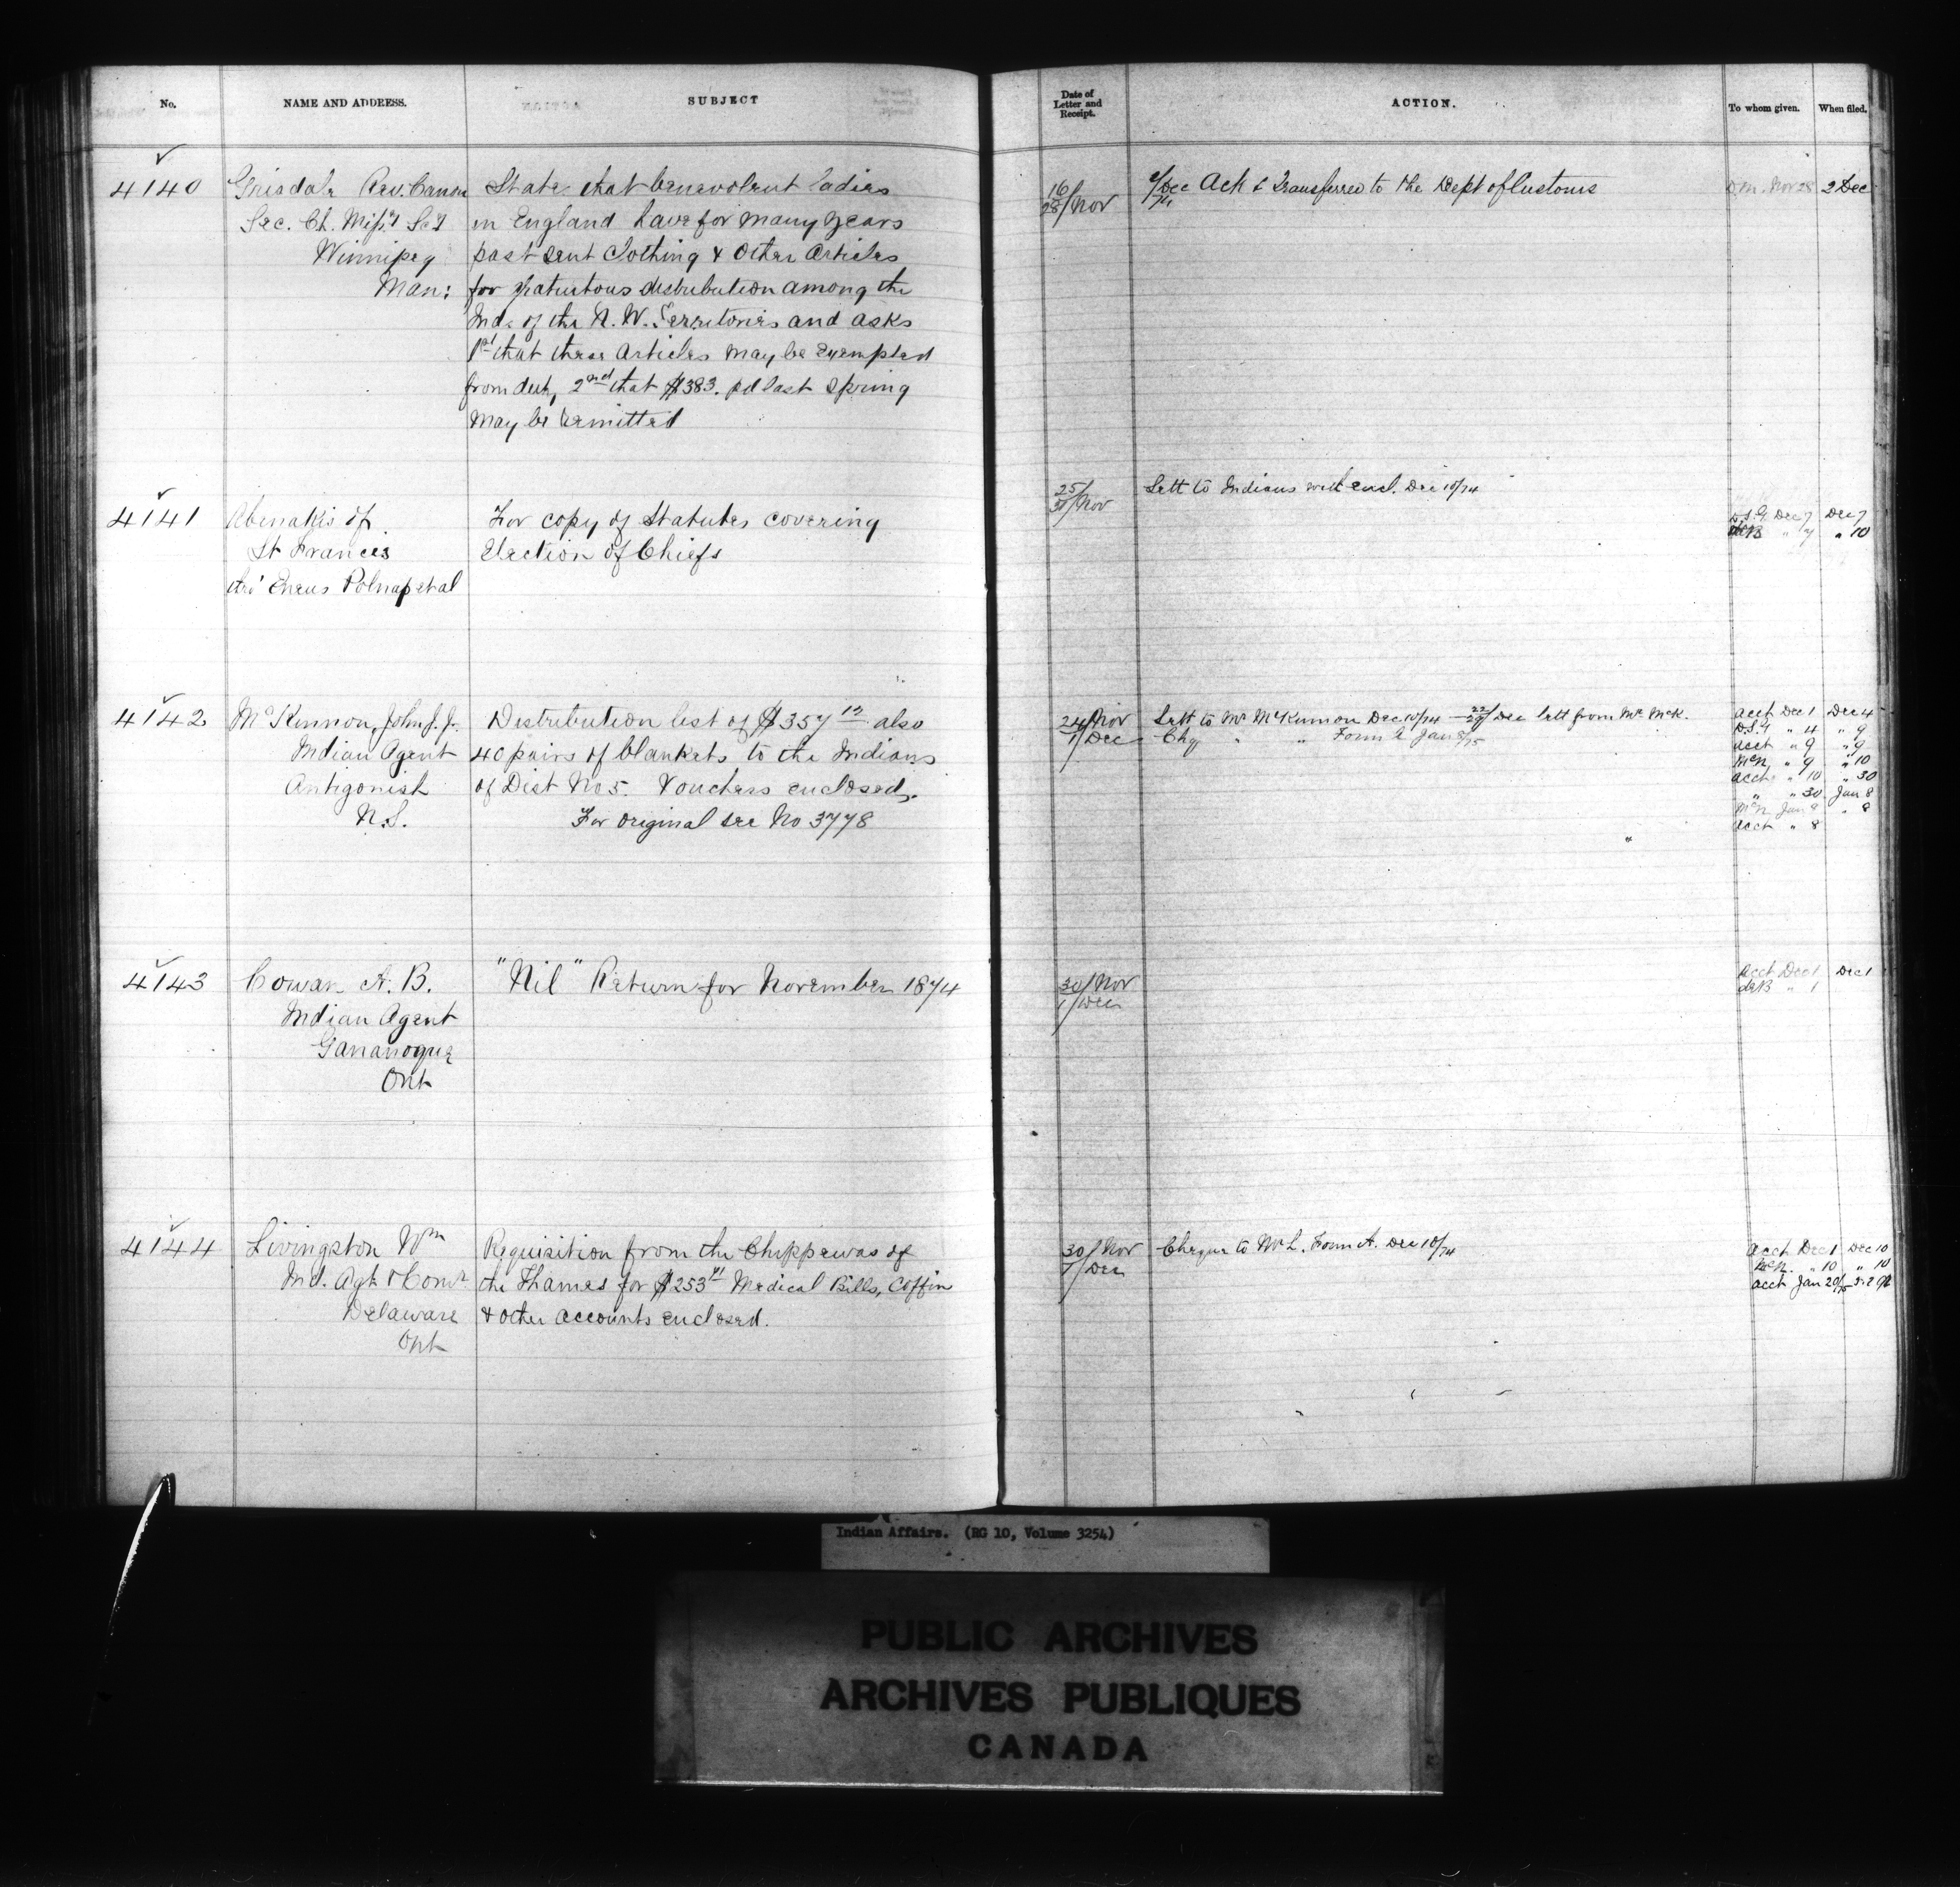 No. NAME AND ADDRESS. SUBJECT
4140 Grisdale Rev. Canon State that benevolent ladies
Sec. Ch. Miss'y Sc'y in England have for many years
Winnipeg past sent Clothing & Other Articles
Man: for gratuitous distribution among the
Inds of the N. W. Territories and asks
1st that these Articles may be Exempted
from duty, 2nd that $383. pd last Spring
may be remitted
4141 Abenakis of For copy of Statutes covering
St Francis Election of Chiefs
thro' Eneus
4142 McKinnon, John J. Jr. Distribution list of $357 12 also
Indian Agent 40 pairs of blankets to the Indians
Antigonish of Dist No 5. Vouchers enclosed.
N.S. For original see No 3778
4143 Cowan A. B. "Nil" Return for November 1874
Indian Agent
Gananoque
Ont
4144 Livingston Wm Requisition from the Chippewas of
Ind. Agt & Comr the Thames for $253 Medical Bills, Coffin
Delaware & other accounts enclosed.
Ont
Date of Letter and Receipt. ACTION. To whom given. When filed.
16/28/Nov 2/Dec/74 Ack & Transferred to the Dept of Customs D.M. Nov 28 2 Dec
25/30/Nov Lett to Indians with encl. Dec 10/74
D.S.G. Dec 7 Dec 7
" 7 " 10
24/Nov Lett to Mr McKinnon Dec 10/74 — 22/29/Dec lett from Mr McK. Acct Dec 1 Dec 4
1/Dec Chq " " Form A Jan 8/75 D.S.G " 4 " 9
Acct " 9 " 9
McN " 9 " 10
Acct " 10 " 30
" " 30 Jan 8
McN Jan 8 " 8
Acct " 8
30/Nov Acct Dec 1 Dec 1
1/Dec deB " 1
30/Nov Cheque to Mr L. Form A. Dec 10/74 Acct Dec 1 Dec 10
1/Dec McN. " 10 " 10
Acct Jan 20/75
Indian Affairs. (RG 10, Volume 3254)
PUBLIC ARCHIVES
ARCHIVES PUBLIQUES
CANADA